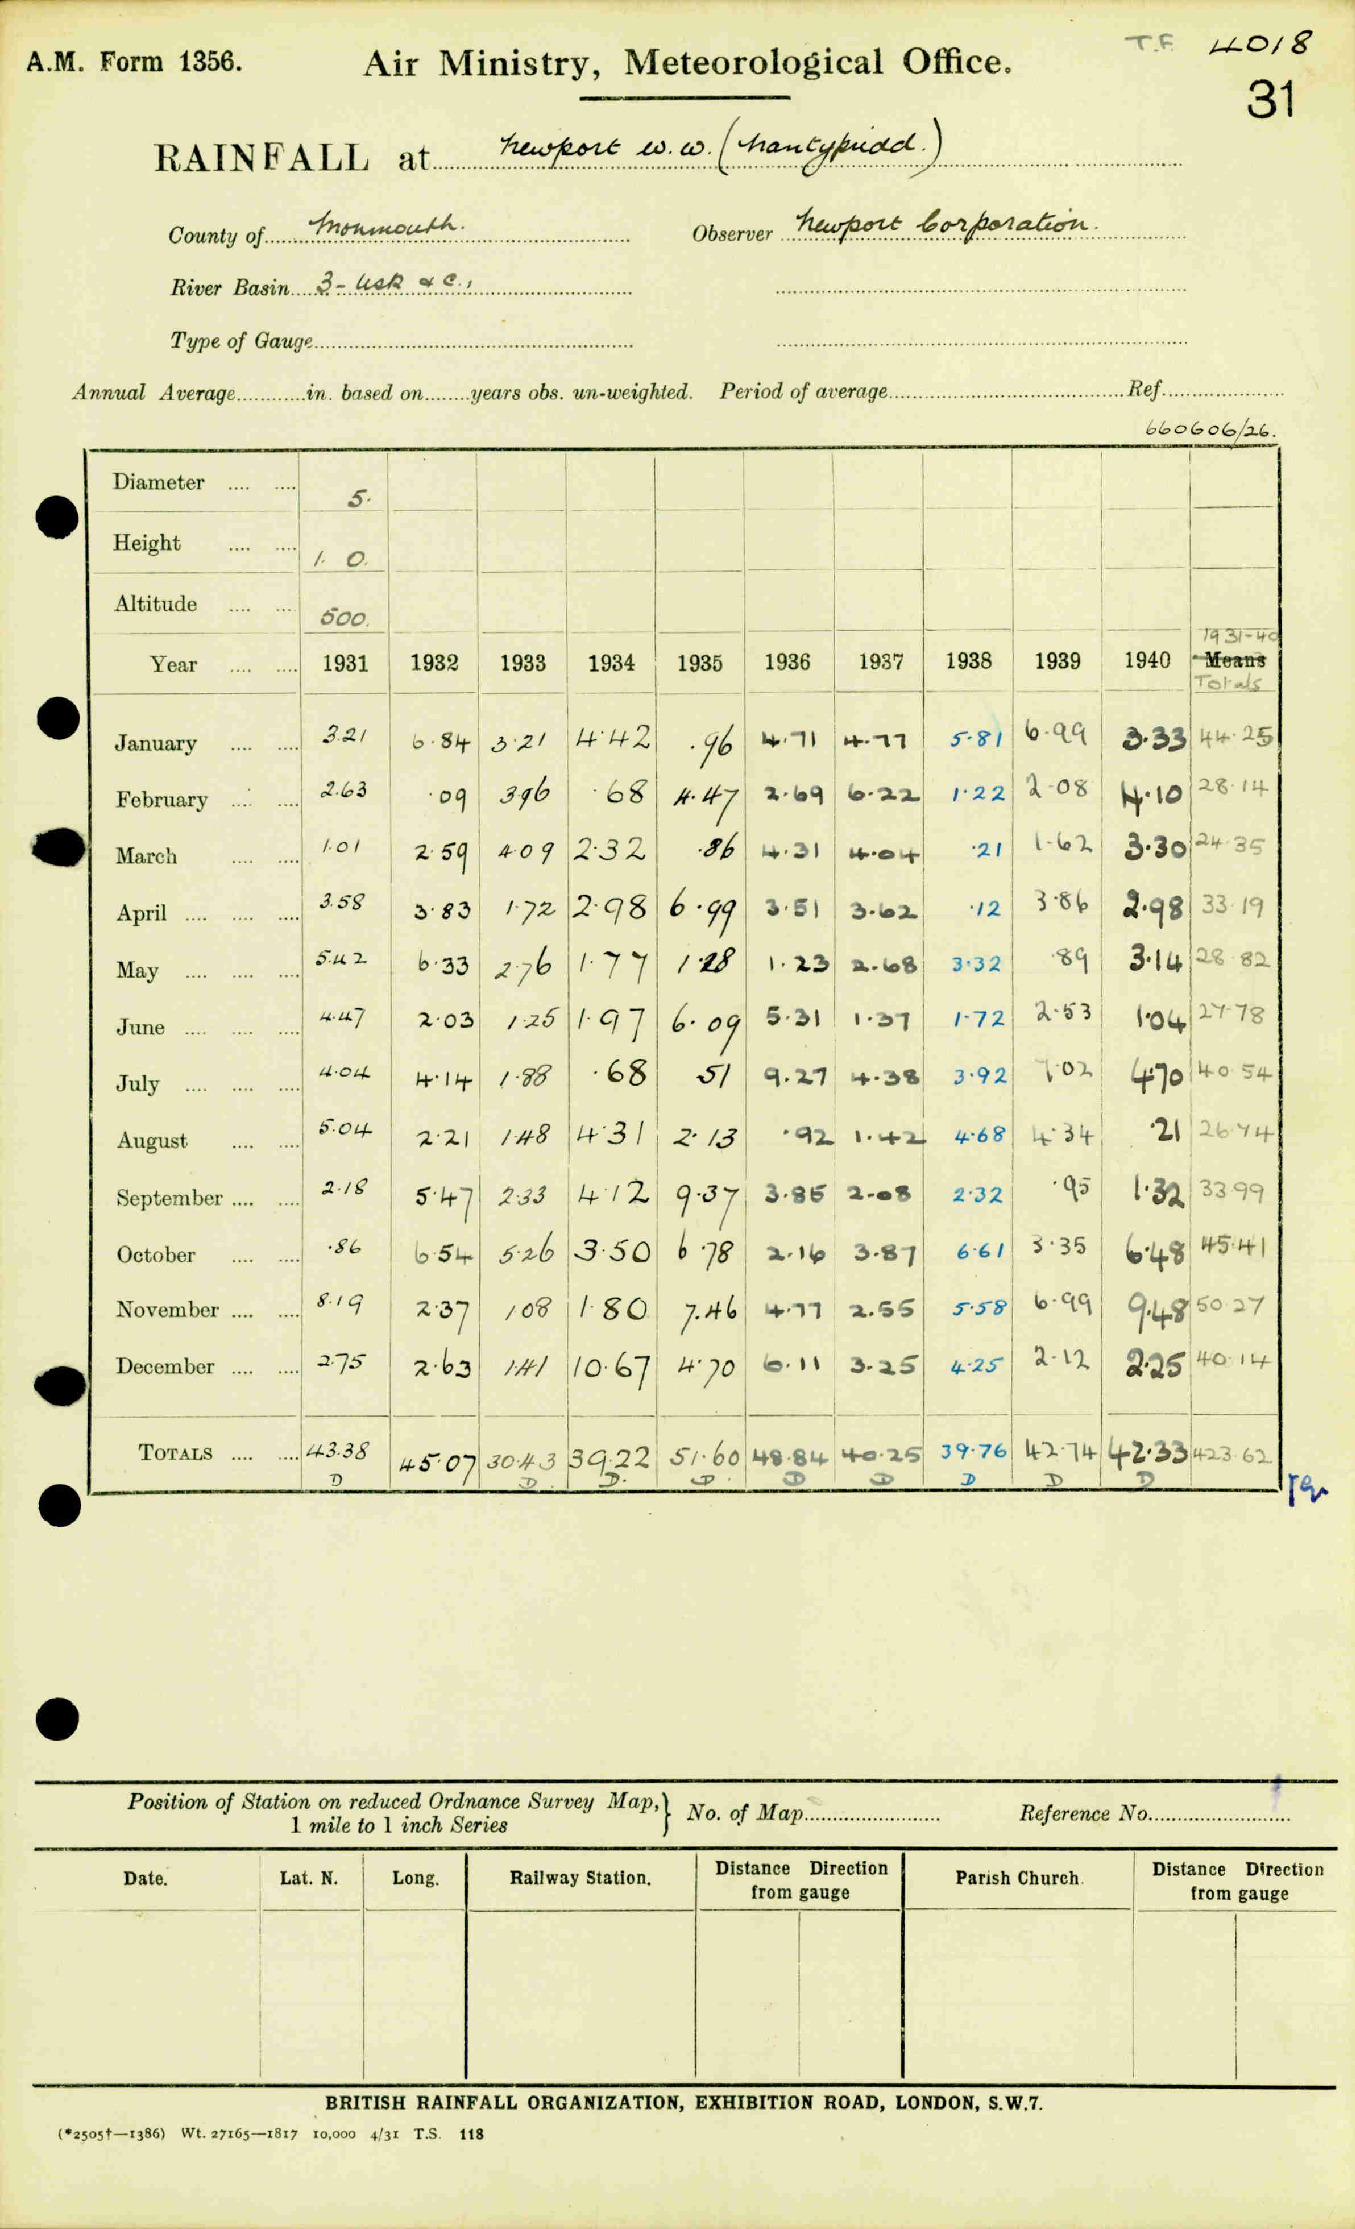 T.F. 4018
A.M. Form 1356. Air Ministry, Meteorological Office.
31
RAINFALL at Newport W.W. (Nantypridd.)
County of Monmouth. Observer Newport Corporation.
River Basin 3 - Usk & c.,
Type of Gauge
Annual Average in. based on years obs. un-weighted. Period of average Ref.
660606/26.
Diameter 5.
Height 1. 0.
Altitude 500.
1931-40
Year 1931 1932 1933 1934 1935 1936 1937 1938 1939 1940 Means
Totals
January 3.21 6.84 3.21 4.42 .96 4.71 4.77 5.81 6.99 3.33 44.25
February 2.63 .09 3.96 .68 4.47 2.69 6.22 1.22 2.08 4.10 28.14
March 1.01 2.59 4.09 2.32 .86 4.31 4.04 .21 1.62 3.30 24.35
April 3.58 3.83 1.72 2.98 6.99 3.51 3.62 .12 3.86 2.98 33.19
May 5.42 6.33 2.76 1.77 1.28 1.23 2.68 3.32 .89 3.14 28.82
June 4.47 2.03 1.25 1.97 6.09 5.31 1.37 1.72 2.53 1.04 27.78
July 4.04 4.14 1.88 .68 .51 9.27 4.38 3.92 7.02 4.70 40.54
August 5.04 2.21 1.48 4.31 2.13 .92 1.42 4.68 4.34 .21 26.74
September 2.18 5.47 2.33 4.12 9.37 3.85 2.08 2.32 .95 1.32 33.99
October .86 6.54 5.26 3.50 6.78 2.16 3.87 6.61 3.35 6.48 45.41
November 8.19 2.37 1.08 1.80 7.46 4.77 2.55 5.58 6.99 9.48 50.27
December 2.75 2.63 1.41 10.67 4.70 6.11 3.25 4.25 2.12 2.25 40.14
TOTALS 43.38 45.07 30.43 39.22 51.60 48.84 40.25 39.76 42.74 42.33 423.62
D D D. D. D D D D D
Position of Station on reduced Ordnance Survey Map, 1 mile to 1 inch Series } No. of Map Reference No.
Date. Lat. N. Long. Railway Station. Distance Direction from gauge Parish Church. Distance Direction from gauge
BRITISH RAINFALL ORGANIZATION, EXHIBITION ROAD, LONDON, S.W.7.
(*2505†—1386) Wt. 27165—1817 10,000 4/31 T.S. 118